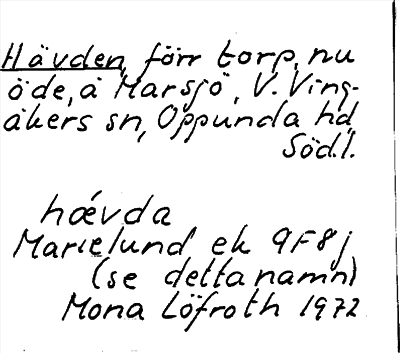 Hävden, förr torp, nu
öde, å Marsjö, V. Ving-
åkers sn, Oppunda hd,
Södl.
hǽvda
Marielund ek 9F8j
(se detta namn)
Mona Löfroth 1972